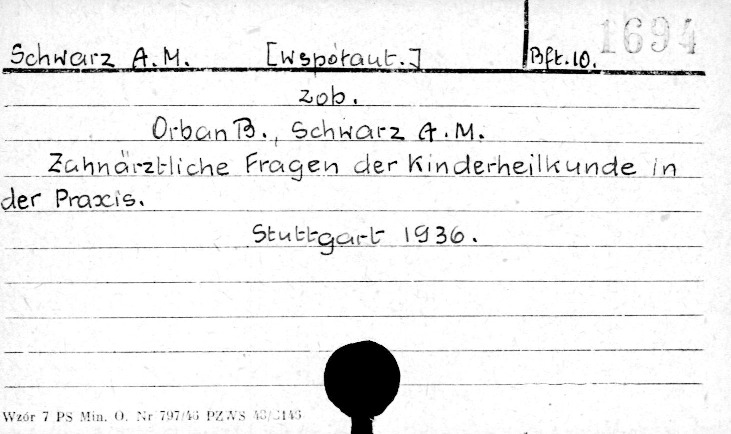 1694
Schwarz A.M. [Współaut.] Bft.10.
zob.
Orban B., Schwarz A.M.
Zahnärztliche Fragen der Kinderheilkunde in
der Praxis.
Stuttgart 1936.
Wzór 7 PS Min. O. Nr 797/46 PZWS